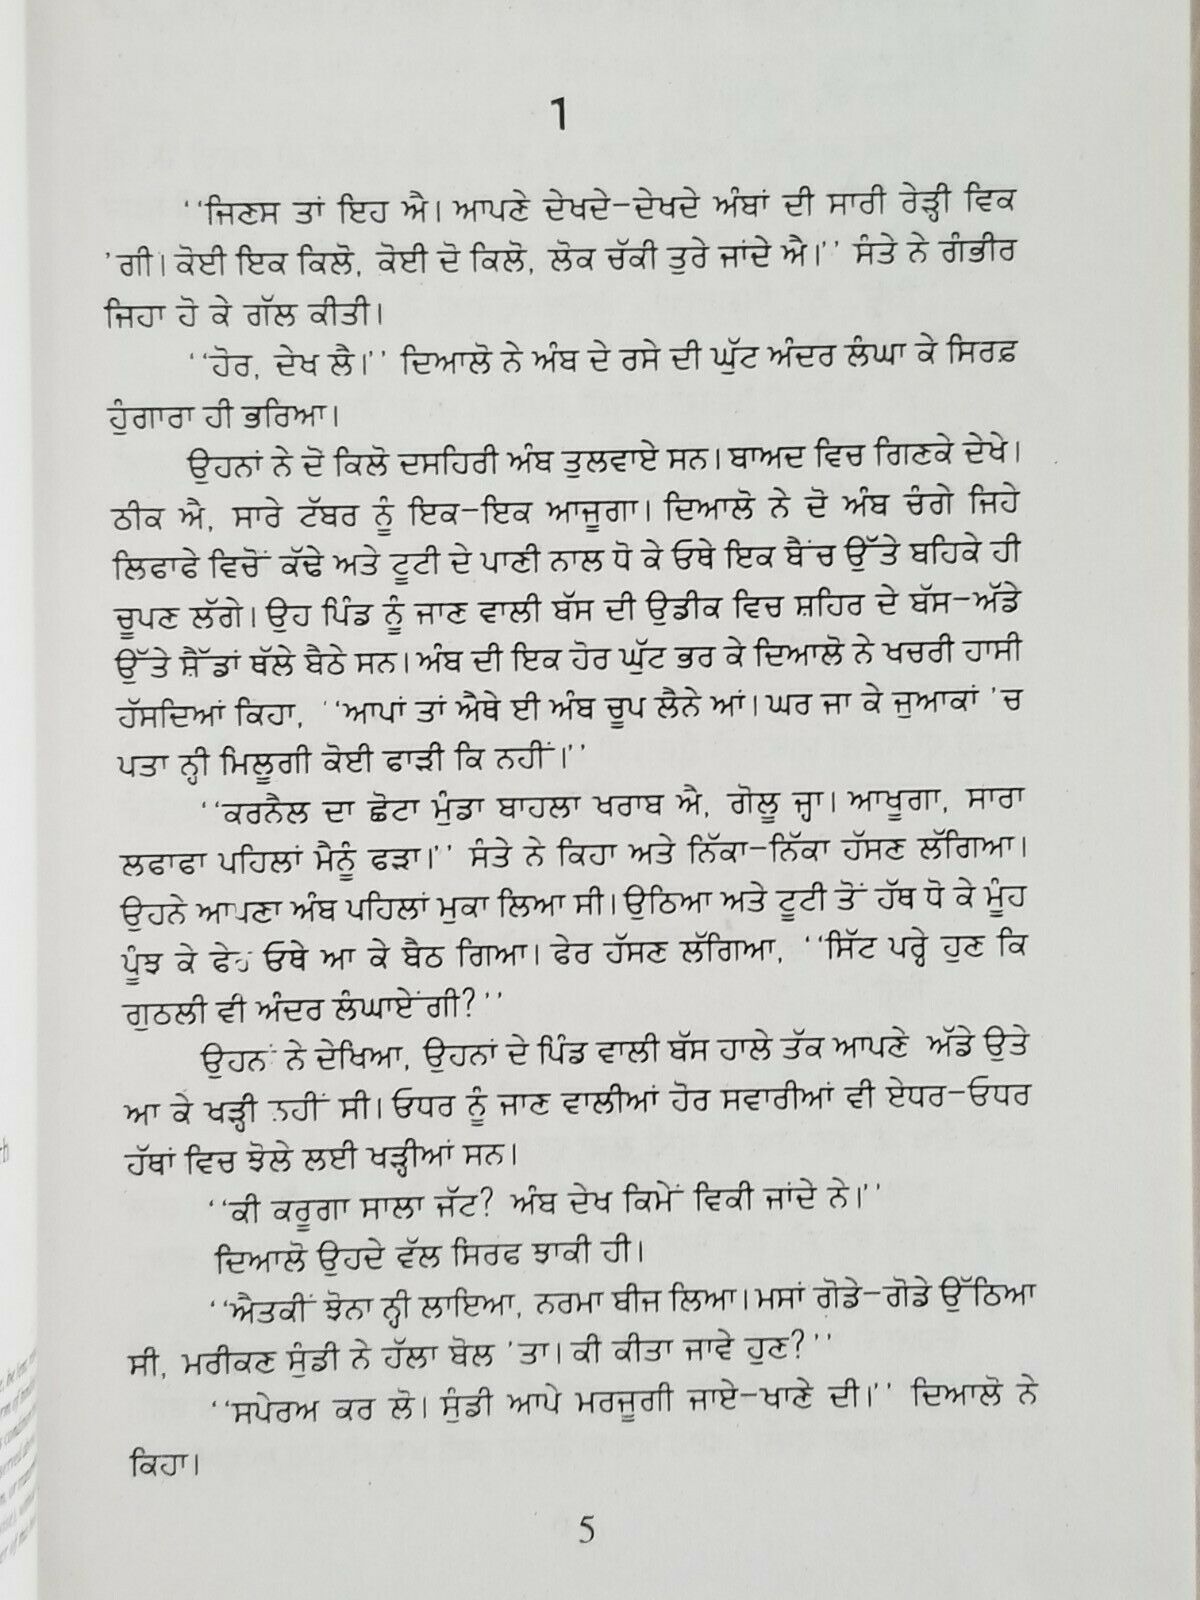 1
''ਜਿਣਸ ਤਾਂ ਇਹ ਐ। ਆਪਣੇ ਦੇਖਦੇ-ਦੇਖਦੇ ਅੰਬਾਂ ਦੀ ਸਾਰੀ ਰੇੜ੍ਹੀ ਵਿਕ
'ਗੀ। ਕੋਈ ਇਕ ਕਿਲੋ, ਕੋਈ ਦੋ ਕਿਲੋ, ਲੋਕ ਚੱਕੀ ਤੁਰੇ ਜਾਂਦੇ ਐ।'' ਸੰਤੇ ਨੇ ਗੰਭੀਰ
ਜਿਹਾ ਹੋ ਕੇ ਗੱਲ ਕੀਤੀ।
''ਹੋਰ, ਦੇਖ ਲੈ।'' ਦਿਆਲੋ ਨੇ ਅੰਬ ਦੇ ਰਸੇ ਦੀ ਘੁੱਟ ਅੰਦਰ ਲੰਘਾ ਕੇ ਸਿਰਫ਼
ਹੁੰਗਾਰਾ ਹੀ ਭਰਿਆ।
ਉਹਨਾਂ ਨੇ ਦੋ ਕਿਲੋ ਦਸਹਿਰੀ ਅੰਬ ਤੁਲਵਾਏ ਸਨ। ਬਾਅਦ ਵਿਚ ਗਿਣਕੇ ਦੇਖੇ।
ਠੀਕ ਐ, ਸਾਰੇ ਟੱਬਰ ਨੂੰ ਇਕ-ਇਕ ਆਜੂਗਾ। ਦਿਆਲੋ ਨੇ ਦੋ ਅੰਬ ਚੰਗੇ ਜਿਹੇ
ਲਿਫਾਫੇ ਵਿਚੋਂ ਕੱਢੇ ਅਤੇ ਟੂਟੀ ਦੇ ਪਾਣੀ ਨਾਲ ਧੋ ਕੇ ਓਥੇ ਇਕ ਬੈਂਚ ਉੱਤੇ ਬਹਿਕੇ ਹੀ
ਚੂਪਣ ਲੱਗੇ। ਉਹ ਪਿੰਡ ਨੂੰ ਜਾਣ ਵਾਲੀ ਬੱਸ ਦੀ ਉਡੀਕ ਵਿਚ ਸ਼ਹਿਰ ਦੇ ਬੱਸ-ਅੱਡੇ
ਉੱਤੇ ਸ਼ੈੱਡਾਂ ਥੱਲੇ ਬੈਠੇ ਸਨ। ਅੰਬ ਦੀ ਇਕ ਹੋਰ ਘੁੱਟ ਭਰ ਕੇ ਦਿਆਲੋ ਨੇ ਖਚਰੀ ਹਾਸੀ
ਹੱਸਦਿਆਂ ਕਿਹਾ, ''ਆਪਾਂ ਤਾਂ ਐਥੇ ਈ ਅੰਬ ਚੂਪ ਲੈਨੇ ਆਂ। ਘਰ ਜਾ ਕੇ ਜੁਆਕਾਂ 'ਚ
ਪਤਾ ਨ੍ਹੀ ਮਿਲੂਗੀ ਕੋਈ ਫਾੜੀ ਕਿ ਨਹੀਂ।''
''ਕਰਨੈਲ ਦਾ ਛੋਟਾ ਮੁੰਡਾ ਬਾਹਲਾ ਖਰਾਬ ਐ, ਗੋਲੂ ਜ੍ਹਾ। ਆਖੂਗਾ, ਸਾਰਾ
ਲਫਾਫਾ ਪਹਿਲਾਂ ਮੈਨੂੰ ਫੜਾ।'' ਸੰਤੇ ਨੇ ਕਿਹਾ ਅਤੇ ਨਿੱਕਾ-ਨਿੱਕਾ ਹੱਸਣ ਲੱਗਿਆ।
ਉਹਨੇ ਆਪਣਾ ਅੰਬ ਪਹਿਲਾਂ ਮੁਕਾ ਲਿਆ ਸੀ। ਉਠਿਆ ਅਤੇ ਟੂਟੀ ਤੋਂ ਹੱਥ ਧੋ ਕੇ ਮੂੰਹ
ਪੂੰਝ ਕੇ ਓਥੇ ਆ ਕੇ ਬੈਠ ਗਿਆ। ਫੇਰ ਹੱਸਣ ਲੱਗਿਆ, ''ਸਿੱਟ ਪਰ੍ਹੇ ਹੁਣ ਕਿ
ਗੁਠਲੀ ਵੀ ਅੰਦਰ ਲੰਘਾਏਂਗੀ?''
ਉਹਨਾਂ ਨੇ ਦੇਖਿਆ, ਉਹਨਾਂ ਦੇ ਪਿੰਡ ਵਾਲੀ ਬੱਸ ਹਾਲੇ ਤੱਕ ਆਪਣੇ ਅੱਡੇ ਉਤੇ
ਆ ਕੇ ਖੜ੍ਹੀ ਨਹੀਂ ਸੀ। ਓਧਰ ਨੂੰ ਜਾਣ ਵਾਲੀਆਂ ਹੋਰ ਸਵਾਰੀਆਂ ਵੀ ਏਧਰ-ਓਧਰ
ਹੱਥਾਂ ਵਿਚ ਝੋਲੇ ਲਈ ਖੜ੍ਹੀਆਂ ਸਨ।
''ਕੀ ਕਰੂਗਾ ਸਾਲਾ ਜੱਟ? ਅੰਬ ਦੇਖ ਕਿਮੇਂ ਵਿਕੀ ਜਾਂਦੇ ਨੇ।''
ਦਿਆਲੋ ਉਹਦੇ ਵੱਲ ਸਿਰਫ ਝਾਕੀ ਹੀ।
''ਐਤਕੀਂ ਝੋਨਾ ਨ੍ਹੀ ਲਾਇਆ, ਨਰਮਾ ਬੀਜ ਲਿਆ। ਮਸਾਂ ਗੋਡੇ-ਗੋਡੇ ਉੱਠਿਆ
ਸੀ, ਮਰੀਕਣ ਸੁੰਡੀ ਨੇ ਹੱਲਾ ਬੋਲ 'ਤਾ। ਕੀ ਕੀਤਾ ਜਾਵੇ ਹੁਣ?''
''ਸਪੇਰਅ ਕਰ ਲੋ। ਸੁੰਡੀ ਆਪੇ ਮਰਜੂਗੀ ਜਾਏ-ਖਾਣੇ ਦੀ।'' ਦਿਆਲੋ ਨੇ
ਕਿਹਾ।
5